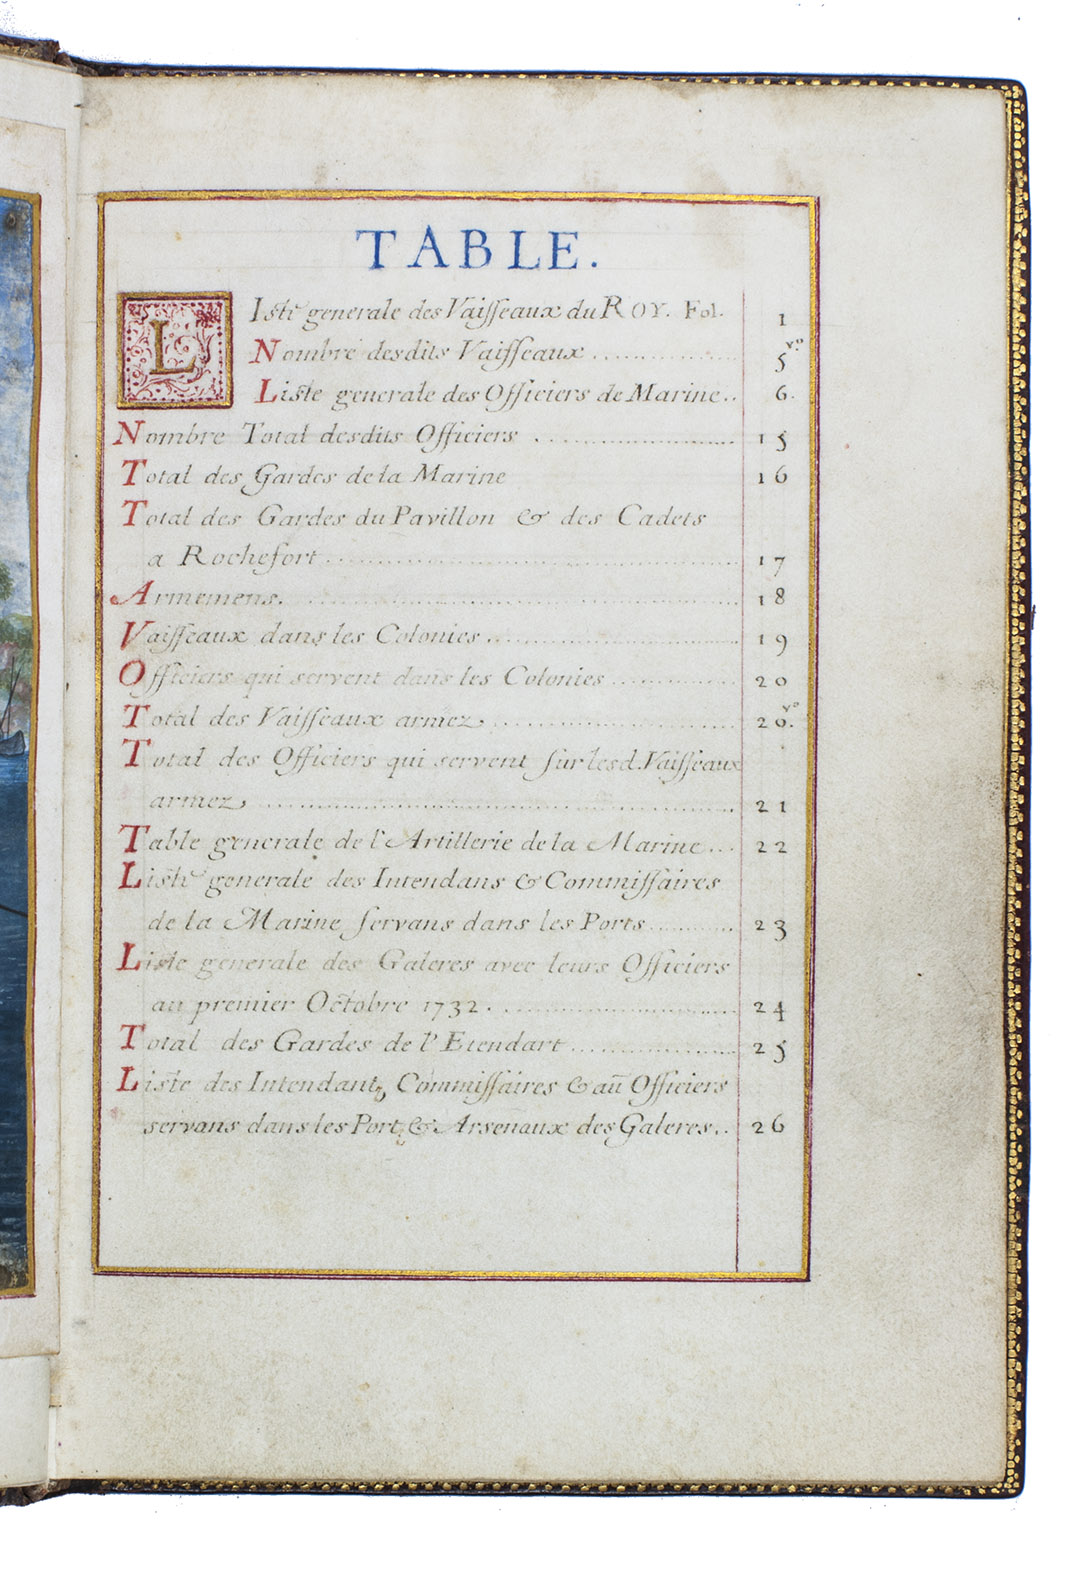 TABLE.
LIste generale des Vaisseaux du ROY. Fol. 1
Nombre desdits Vaisseaux ............... 5 vo
Liste generale des Officiers de Marine.. 6.
Nombre Total desdits Officiers .................... 15
Total des Gardes de la Marine 16
Total des Gardes du Pavillon & des Cadets
a Rochefort ........................................ 17
Armemens. ........................................ 18
Vaisseaux dans les Colonies ......................... 19
Officiers qui servent dans les Colonies ............. 20
Total des Vaisseaux armez, ......................... 20. vo
Total des Officiers qui servent sur lesd. Vaisseaux
armez, ............................................. 21
Table generale de l'Artillerie de la Marine... 22
Liste generale des Intendans & Commissaires
de la Marine servans dans les Ports .......... 23
Liste generale des Galeres avec leurs Officiers
au premier Octobre 1732. ......................... 24
Total des Gardes de l'Etendart ................. 25
Liste des Intendants, Commissaires & au Officiers
servans dans les Ports & Arsenaux des Galeres.. 26